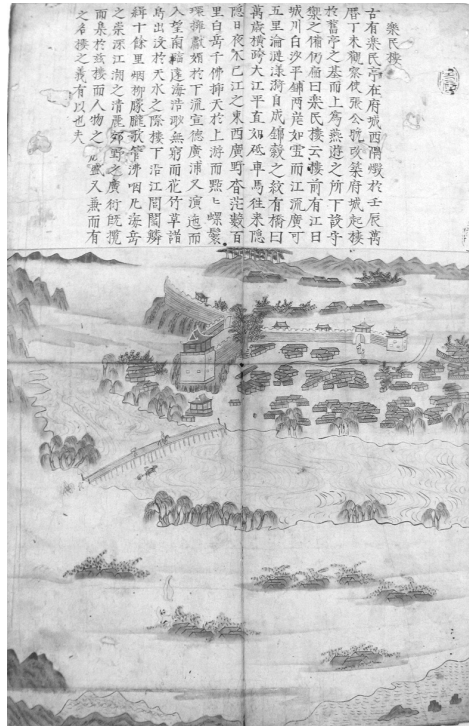 樂民樓
古有樂民亭在府城西隅燬於壬辰萬
曆丁未觀察使張公晩改築府城起樓
於舊亭之基而上爲燕遊之所下設守
禦之備仍扁曰樂民樓云樓前有江曰
城川白沙平鋪两岸如雪而江流廣可
五里淪漣漾漪自成錦縠之紋有橋曰
萬歲橫跨大江平直如砥車馬往来隱
隱日夜不已江之東西廣野杳茫數百
里白岳千佛揷天於上游而點〻螺鬟
環擁獻媚於下流宣德廣浦又演迤而
入望南臨蓬海浩渺無窮而花竹草諸
島出没於天水之際樓下沿江閭閻鱗
緝十餘里烟柳朦朧歌管沸咽凡海岳
之崇深江湖之清麗郊野之廣衍旣攬
而集於兹樓而人物之盛又兼而有
之名樓之義有以也夫